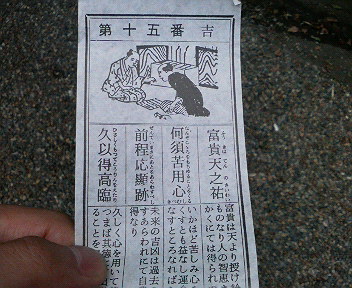 第十五番 吉
富貴天之祐
富貴は天より授け
ものなり人の智恵
かくにては得られ
何須苦用心
いかほど苦しみ心
くすとも益なし運
なすところなれば
前程応顯跡
未来の吉凶は過去
すあらわれにて自
得なり
久以得高臨
久しく心を用いて
つまば其
ることを